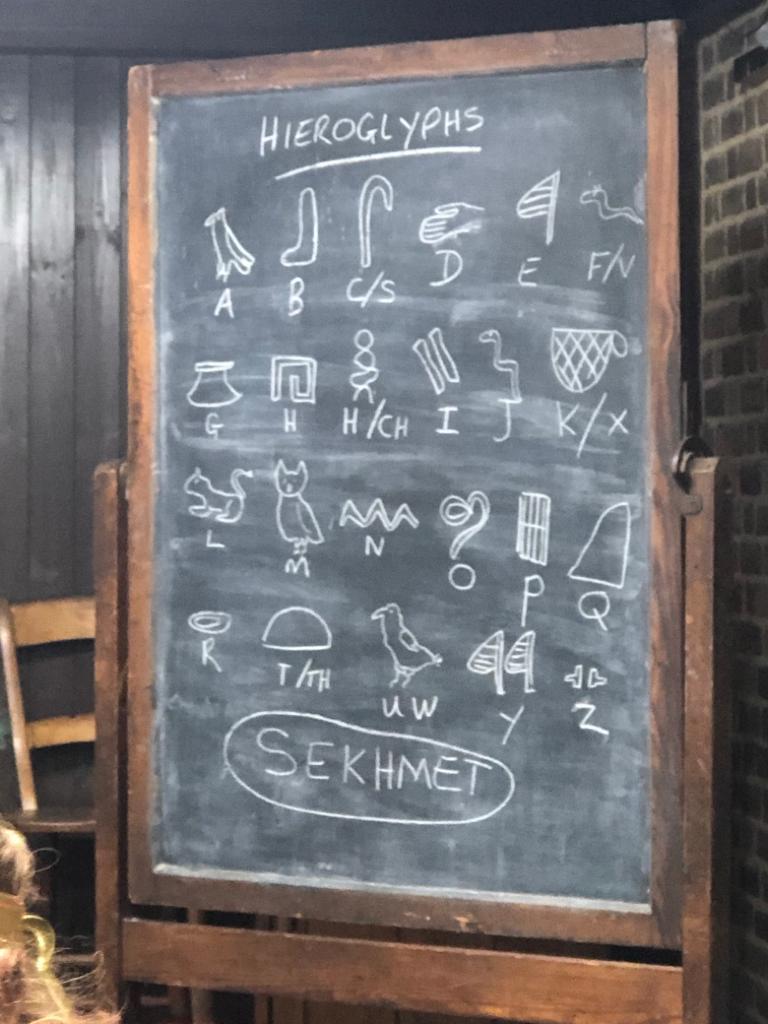 HIEROGLYPHS
A B C/S D E F/N
G H H/CH I J K/X
L M N O P Q
R T/TH U W Y Z
SEKHMET